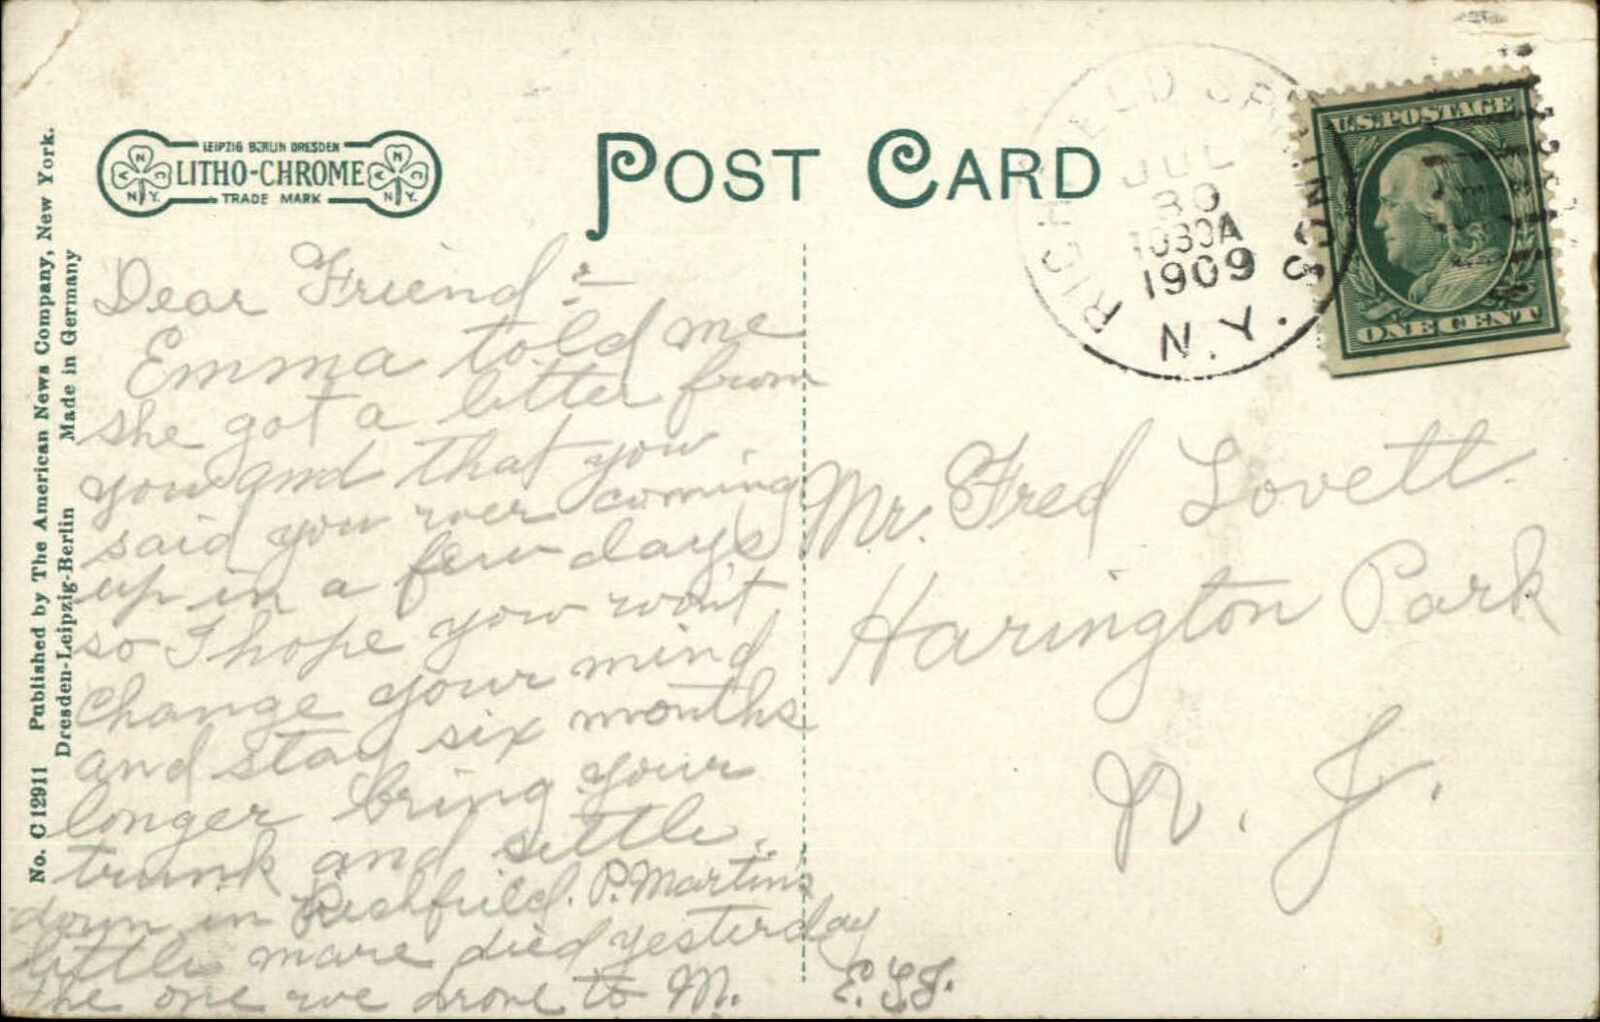 No. C 12911 Published by The American News Company, New York.
Dresden-Leipzig-Berlin Made in Germany
LEIPZIG BERLIN DRESDEN
LITHO-CHROME
TRADE MARK
POST CARD
RICHFIELD SPRINGS
JUL
30
1030A
1909
N.Y.
U.S. POSTAGE
ONE CENT
Dear Friend :-
Emma told me
she got a letter from
you and that you
said you wer coming
up in a few days
so I hope you won't
change your mind
and stay six months
longer bring your
trunk and settle
down in Richfield. P. Martin's
little mare died yesterday
the one we drove to M.
Mr. Fred Lovett
Harington Park
N. J.